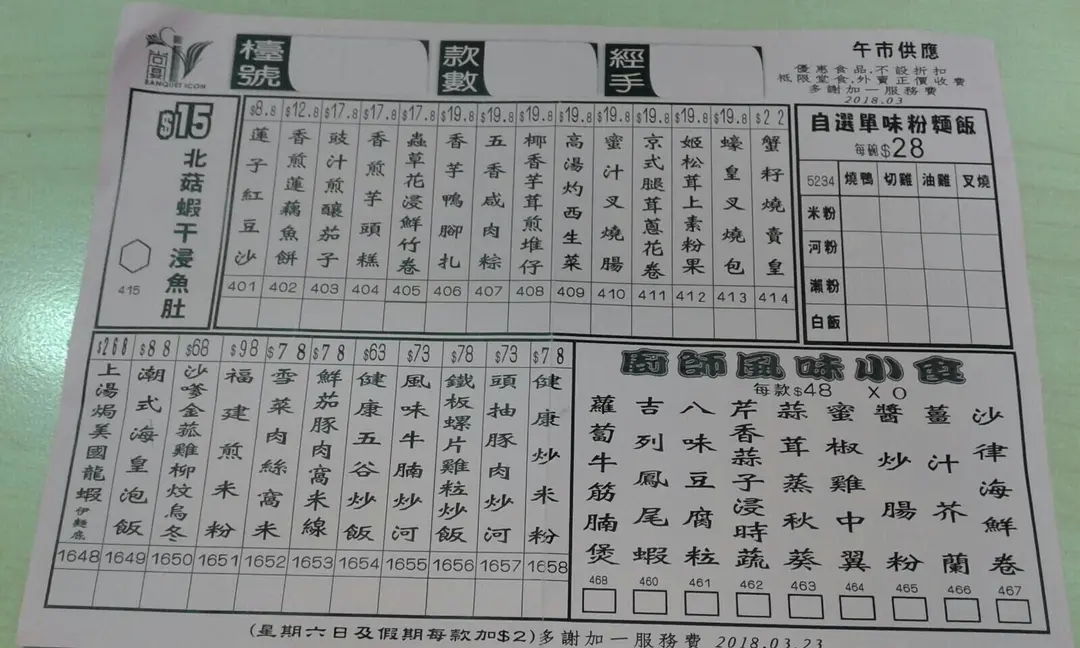 尚宴
BANQUET ICON
檯號
款數
經手
午市供應
優惠食品,不設折扣
祗限堂食,外賣正價收費
多謝加一服務費
2018.03
$15
北菇蝦干浸魚肚
415
$8.8 蓮子紅豆沙 401
$12.8 香煎蓮藕魚餅 402
$17.8 豉汁煎釀茄子 403
$17.8 香煎芋頭糕 404
$17.8 蟲草花浸鮮竹卷 405
$19.8 香芋鴨腳扎 406
$19.8 五香咸肉粽 407
$19.8 椰香芋茸煎堆仔 408
$19.8 高湯灼西生菜 409
$19.8 蜜汁叉燒腸 410
$19.8 京式腿茸蔥花卷 411
$19.8 姬松茸上素粉果 412
$19.8 蠔皇叉燒包 413
$22 蟹籽燒賣皇 414
自選單味粉麵飯
每碗$28
5234 燒鴨 切雞 油雞 叉燒
米粉
河粉
瀨粉
白飯
$268 上湯焗美國龍蝦伊麵底 1648
$88 潮式海皇泡飯 1649
$68 沙嗲金菰雞柳炆烏冬 1650
$98 福建煎米粉 1651
$78 雪菜肉絲窩米 1652
$78 鮮茄豚肉窩米線 1653
$63 健康五谷炒飯 1654
$73 風味牛腩炒河 1655
$78 鐵板螺片雞粒炒飯 1656
$73 頭抽豚肉炒河 1657
$78 健康炒米粉 1658
廚師風味小食
每款$48
蘿蔔牛筋腩煲 468
吉列鳳尾蝦 460
八味豆腐粒 461
芹香蒜子浸時蔬 462
蒜茸蒸秋葵 463
蜜椒雞中翼 464
XO醬炒腸粉 465
薑汁芥蘭 466
沙律海鮮卷 467
(星期六日及假期每款加$2)多謝加一服務費 2018.03.23